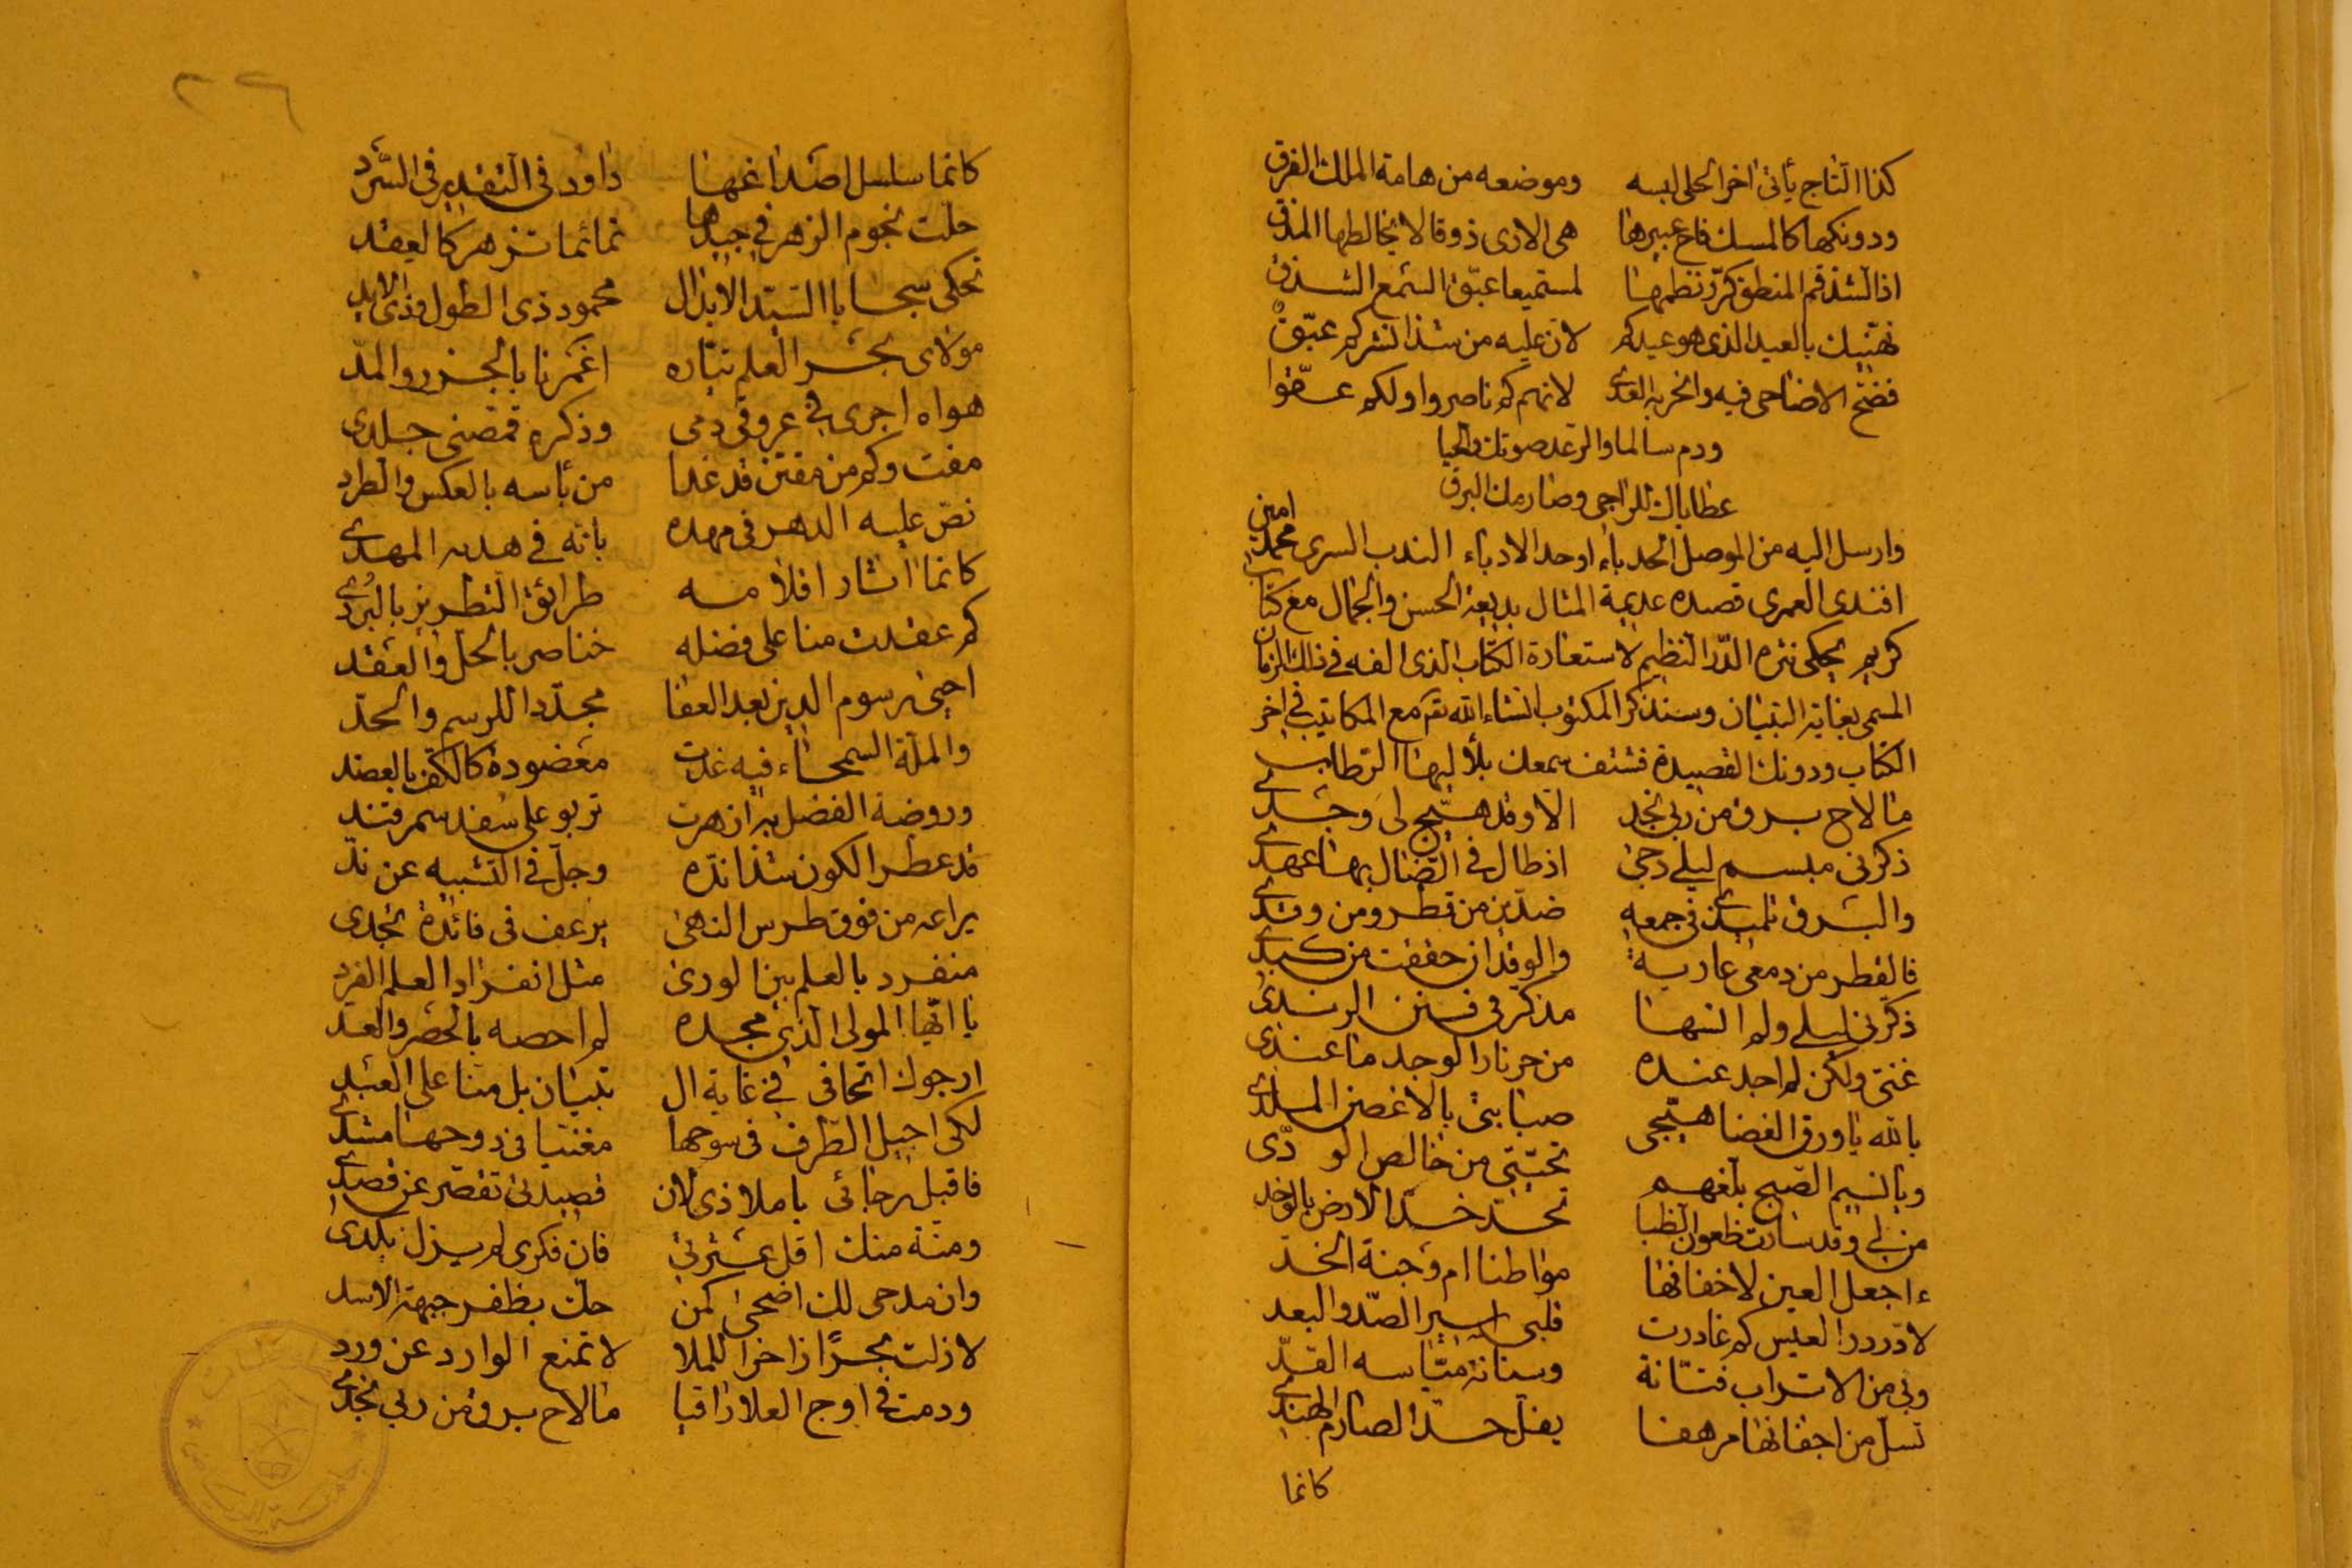 كذا التاج يأتي اخر الحلى لبسه وموضعه من هامة الملك الفرق
ودونكها كالمسك فاح عبيرها هى الارى ذوقا لا يخالطها المذق
اذا لشذ فم المنطق كرر نظمها لمستميعا عبق السمع الشذق
نهنيك بالعيد الذى هو عيدكم لان عليه من شذا نشركم عبق
فضح الاضاحى فيه وانحر به العدى لانهم كم ناصروا ولكم عقوا
ودم سالما والرعد صوتك والحيا
عطاياك للراجى وصارمك البرق
وارسل اليه من الموصل الحدباء اوحد الادباء الندب السرى محمد امين
افندى العمرى قصيده عديمة المثال بديعة الحسن والجمال مع كتاب
كريم يحكى نثره الدر النظيم لاستعارة الكتاب الذى الفه في ذلك الزمان
المسمى بغاية التبيان وسنذكر المكتوب انشاء الله تع مع المكاتيب في اخر
الكتاب ودونك القصيدة فشنف سمعك بلأليها الرطاب
ما لاح برق من ربى نجد الا وقد هيج لى وجدى
ذكرنى مبسم ليلى دجى اذ طال في الضال بها عهدى
والبرق تلميذى في جمعه ضدين من قطر ومن وقد
فالقطر من دمعى عارية والوقد ان حققت من كبدى
ذكرنى ليلى ولم انسها مذكر في فنن الرند
غنى ولكن لم اجد عنده من حر نار الوجد ما عندى
بالله يا ورق الغضا هيجى صبابتى بالاغصن الملد
ويا نسيم الصبح بلغهم تحيتى من خالص الود
من لى وقد سارت ظعون الظبا تخد خد الارض بالوخد
ءاجعل العين لاخفافها مواطنا ام وجنة الخد
لا در در العيس كم غادرت قلبى اسير الصد والبعد
وبى من الاتراب فتانة وسنانة مياسه القد
تسل من اجفانها مرهفا يفل حد الصارم الهندى
كانما
٢٦
كانما سلسل اصداغها داود في التقدير في السرد
حلت نجوم الزهر في جيدها تمائما تزهر كالعقد
تحكى سجايا السيد الابذال محمود ذى الطول وذى الايد
مولاى بحر العلم تياره اغمرنا بالجزر والمد
هواه اجرى في عروقى دمى وذكره قمصنى جلدى
مفت وكم من مفتن قد غدا من بأسه بالعكس والطرد
نص عليه الدهر في مهده بانه في هديه المهدى
كانما اثار اقلامه طرائق التطريز بالبرد
كم عقدت منا على فضله خناصر بالحل والعقد
احيى رسوم الدين بعد العفا مجددا للرسم والحد
والملة السمحاء فيه غدت معضودة كالكف بالعضد
وروضة الفضل به ازهرت تربو على سغد سمرقند
قد عطر الكون شذا نده وجل في التشبيه عن ند
يراعه من فوق طرس النهى يرعف في فائدة تجدى
منفرد بالعلم بين الورى مثل انفراد العلم الفرد
يا ايها المولى الذى مجده لم احصه بالحصر والعد
ارجوك اتحافى في غاية ال تبيان بل منا على العبد
لكى اجيل الطرف في سوحها مغنيا في دوحها مشدى
فاقبل رجائى يا ملاذى لان قصيدتى تقصر عن قصدى
ومنة منك اقل عثرتى فان فكرى لم يزل يكدى
وان مدحى لك اضحى كمن حك بظفر جبهة الاسد
لا زلت بحرًا زاخرا للملا لا تمنع الوارد عن ورد
ودمت في اوج العلا راقيا ما لاح برق من ربى نجد